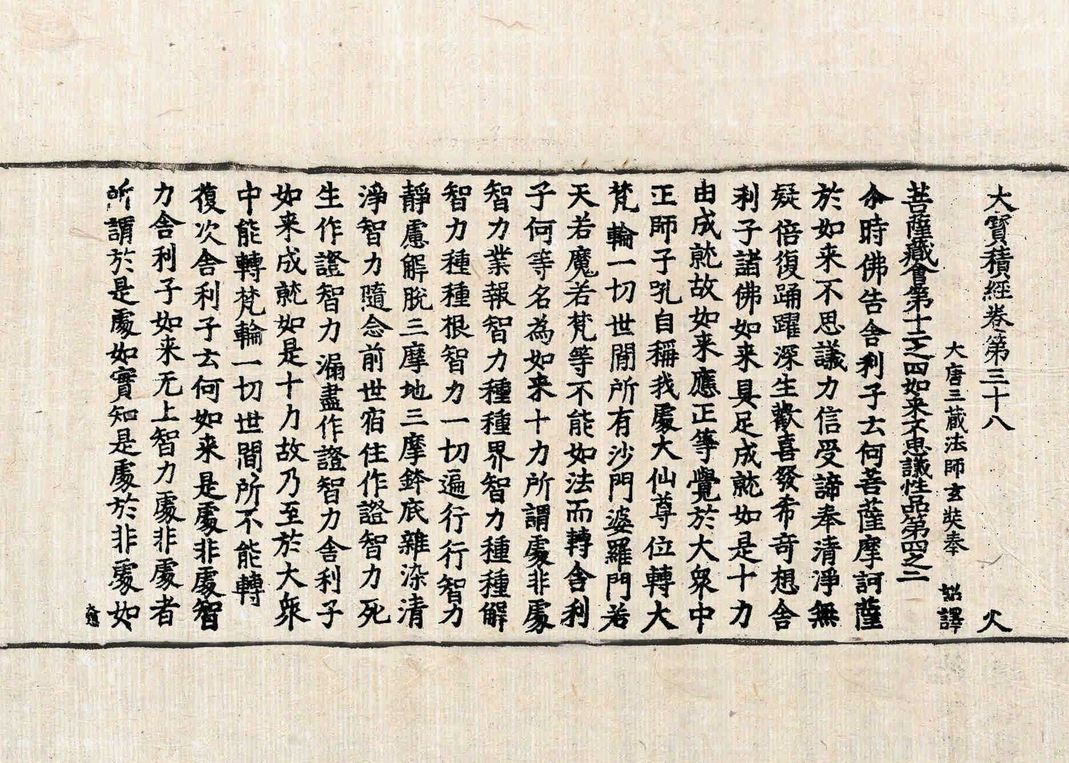 大寶積經卷第三十八 火
大唐三藏法師玄奘奉 詔譯
菩薩藏會第十二之四如来不思議性品第四之二
尒時佛告舍利子云何菩薩摩訶薩
於如来不思議力信受諦奉清淨無
疑倍復踊躍深生歡喜發希奇想舍
利子諸佛如来具足成就如是十力
由成就故如来應正等覺於大衆中
正師子吼自稱我處大仙尊位轉大
梵輪一切世間所有沙門婆羅門若
天若魔若梵等不能如法而轉舍利
子何等名為如来十力所謂處非處
智力業報智力種種界智力種種解
智力種種根智力一切遍行行智力
靜慮解脫三摩地三摩鉢底雜染清
淨智力隨念前世宿住作證智力死
生作證智力漏盡作證智力舍利子
如来成就如是十力故乃至於大衆
中能轉梵輪一切世間所不能轉
復次舍利子云何如来是處非處智
力舍利子如来无上智力處非處者
所謂於是處如實知是處於非處如